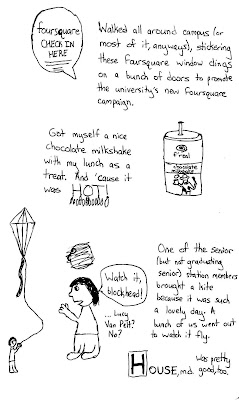 foursquare
CHECK IN
HERE
Walked all around campus (or
most of it, anyways), stickering
these foursquare window clings
on a bunch of doors to promote
the university's new foursquare
campaign.
Got myself a nice
chocolate milkshake
with my lunch as a
treat. And 'cause it
was HOT!
f'real
chocolate
milkshake
Watch it,
blockhead!
... Lucy
Van Pelt?
No?
One of the senior
(but not graduating
senior) station members
brought a kite
because it was such
a lovely day. A
bunch of us went out
to watch it fly.
HOUSE, m.d. was pretty
good, too.